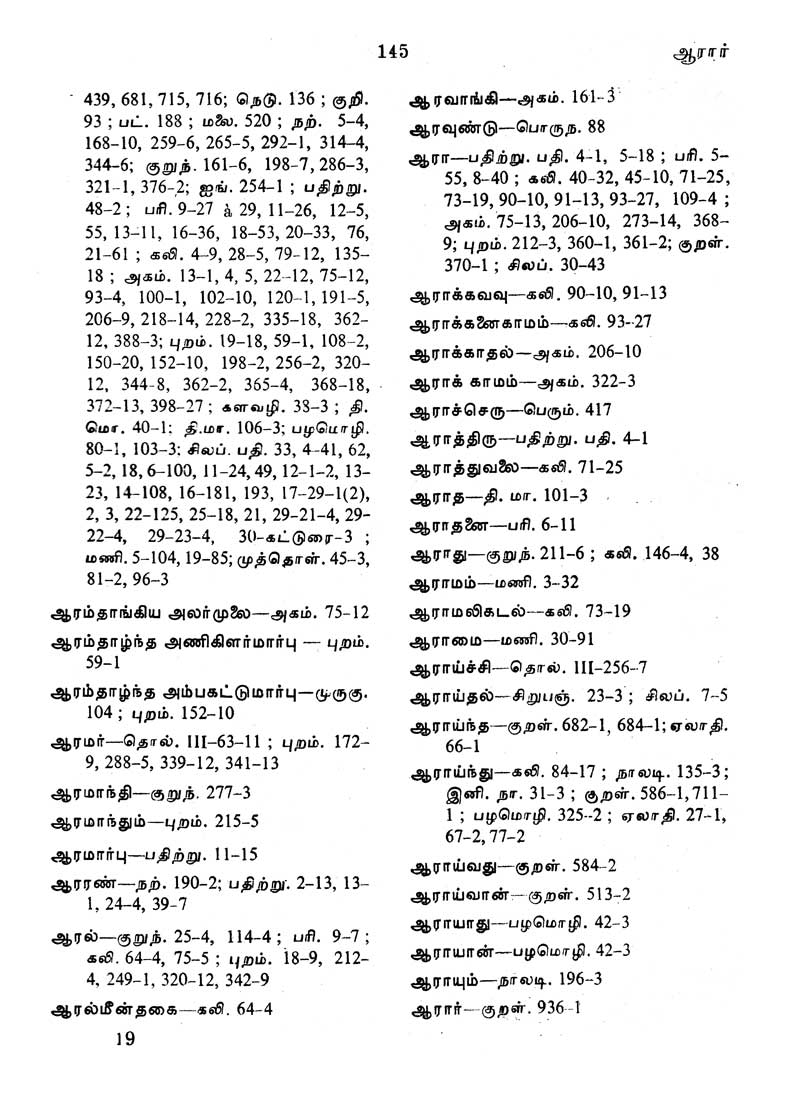 145
ஆரார்
439, 681, 715, 716; நெடு. 136 ; குறி.
93 ; பட். 188 ; மலை. 520 ; நற். 5–4,
168-10, 259-6, 265-5, 292-1, 314-4,
344-6; குறுந். 161-6, 198-7, 286-3,
321-1, 376-2; ஐங். 254-1 ; பதிற்று.
48-2 ; பரி. 9-27 à 29, 11-26, 12-5,
55, 13-11, 16-36, 18-53, 20-33, 76,
21-61 ; கலி. 4-9, 28-5, 79-12, 135-
18 ; அகம். 13-1, 4, 5, 22-12, 75-12,
93-4, 100-1, 102-10, 120-1, 191-5,
206-9, 218-14, 228-2, 335-18, 362-
12, 388-3; புறம். 19-18, 59-1, 108-2,
150-20, 152-10, 198-2, 256-2, 320-
12, 344-8, 362-2, 365-4, 368-18,
372-13, 398-27 ; களவழி. 38-3 ; தி.
மொ. 40-1; தி.மா. 106-3; பழமொழி.
80-1, 103-3; சிலப். பதி. 33, 4-41, 62,
5-2, 18, 6-100, 11-24, 49, 12-1-2, 13-
23, 14-108, 16-181, 193, 17-29-1(2),
2, 3, 22-125, 25-18, 21, 29-21-4, 29-
22-4, 29-23-4, 30-கட்டுரை-3 ;
மணி. 5-104, 19-85; முத்தொள். 45-3,
81-2, 96-3
ஆரம்தாங்கிய அலர்முலை—அகம். 75-12
ஆரம்தாழ்ந்த அணிகிளர்மார்பு — புறம்.
59-1
ஆரம்தாழ்ந்த அம்பகட்டுமார்பு—முருகு.
104 ; புறம். 152-10
ஆரமர்—தொல். III-63-11 ; புறம். 172-
9, 288-5, 339-12, 341-13
ஆரமாந்தி—குறுந். 277-3
ஆரமாந்தும்—புறம். 215-5
ஆரமார்பு—பதிற்று. 11-15
ஆரரண்—நற். 190-2; பதிற்று. 2-13, 13-
1, 24-4, 39-7
ஆரல்—குறுந். 25-4, 114-4 ; பரி. 9-7 ;
கலி. 64-4, 75-5 ; புறம். 18-9, 212-
4, 249-1, 320-12, 342-9
ஆரல்மீன்தகை—கலி. 64-4
19
ஆரவாங்கி—அகம். 161-3
ஆரவுண்டு—பொருந. 88
ஆரா—பதிற்று. பதி. 4-1, 5-18 ; பரி. 5-
55, 8-40 ; கலி. 40-32, 45-10, 71-25,
73-19, 90-10, 91-13, 93-27, 109-4 ;
அகம். 75-13, 206-10, 273-14, 368-
9; புறம். 212-3, 360-1, 361-2; குறள்.
370-1 ; சிலப். 30-43
ஆராக்கவவு—கலி. 90-10, 91-13
ஆராக்கனைகாமம்—கலி. 93-27
ஆராக்காதல்—அகம். 206-10
ஆராக் காமம்—அகம். 322-3
ஆராச்செரு—பெரும். 417
ஆராத்திரு—பதிற்று. பதி. 4-1
ஆராத்துவலை—கலி. 71-25
ஆராத—தி. மா. 101-3
ஆராதனை—பரி. 6-11
ஆராது—குறுந். 211-6 ; கலி. 146-4, 38
ஆராமம்—மணி. 3-32
ஆராமலிகடல்—கலி. 73-19
ஆராமை—மணி. 30-91
ஆராய்ச்சி—தொல். III-256-7
ஆராய்தல்—சிறுபஞ். 23-3 ; சிலப். 7-5
ஆராய்ந்த—குறள். 682-1, 684-1; ஏலாதி.
66-1
ஆராய்ந்து—கலி. 84-17 ; நாலடி. 135-3 ;
இனி. நா. 31-3 ; குறள். 586-1, 711-
1 ; பழமொழி. 325-2 ; ஏலாதி. 27-1,
67-2, 77-2
ஆராய்வது—குறள். 584-2
ஆராய்வான்—குறள். 513-2
ஆராயாது—பழமொழி. 42-3
ஆராயான்—பழமொழி. 42-3
ஆராயும்—நாலடி. 196-3
ஆரார்—குறள். 936-1